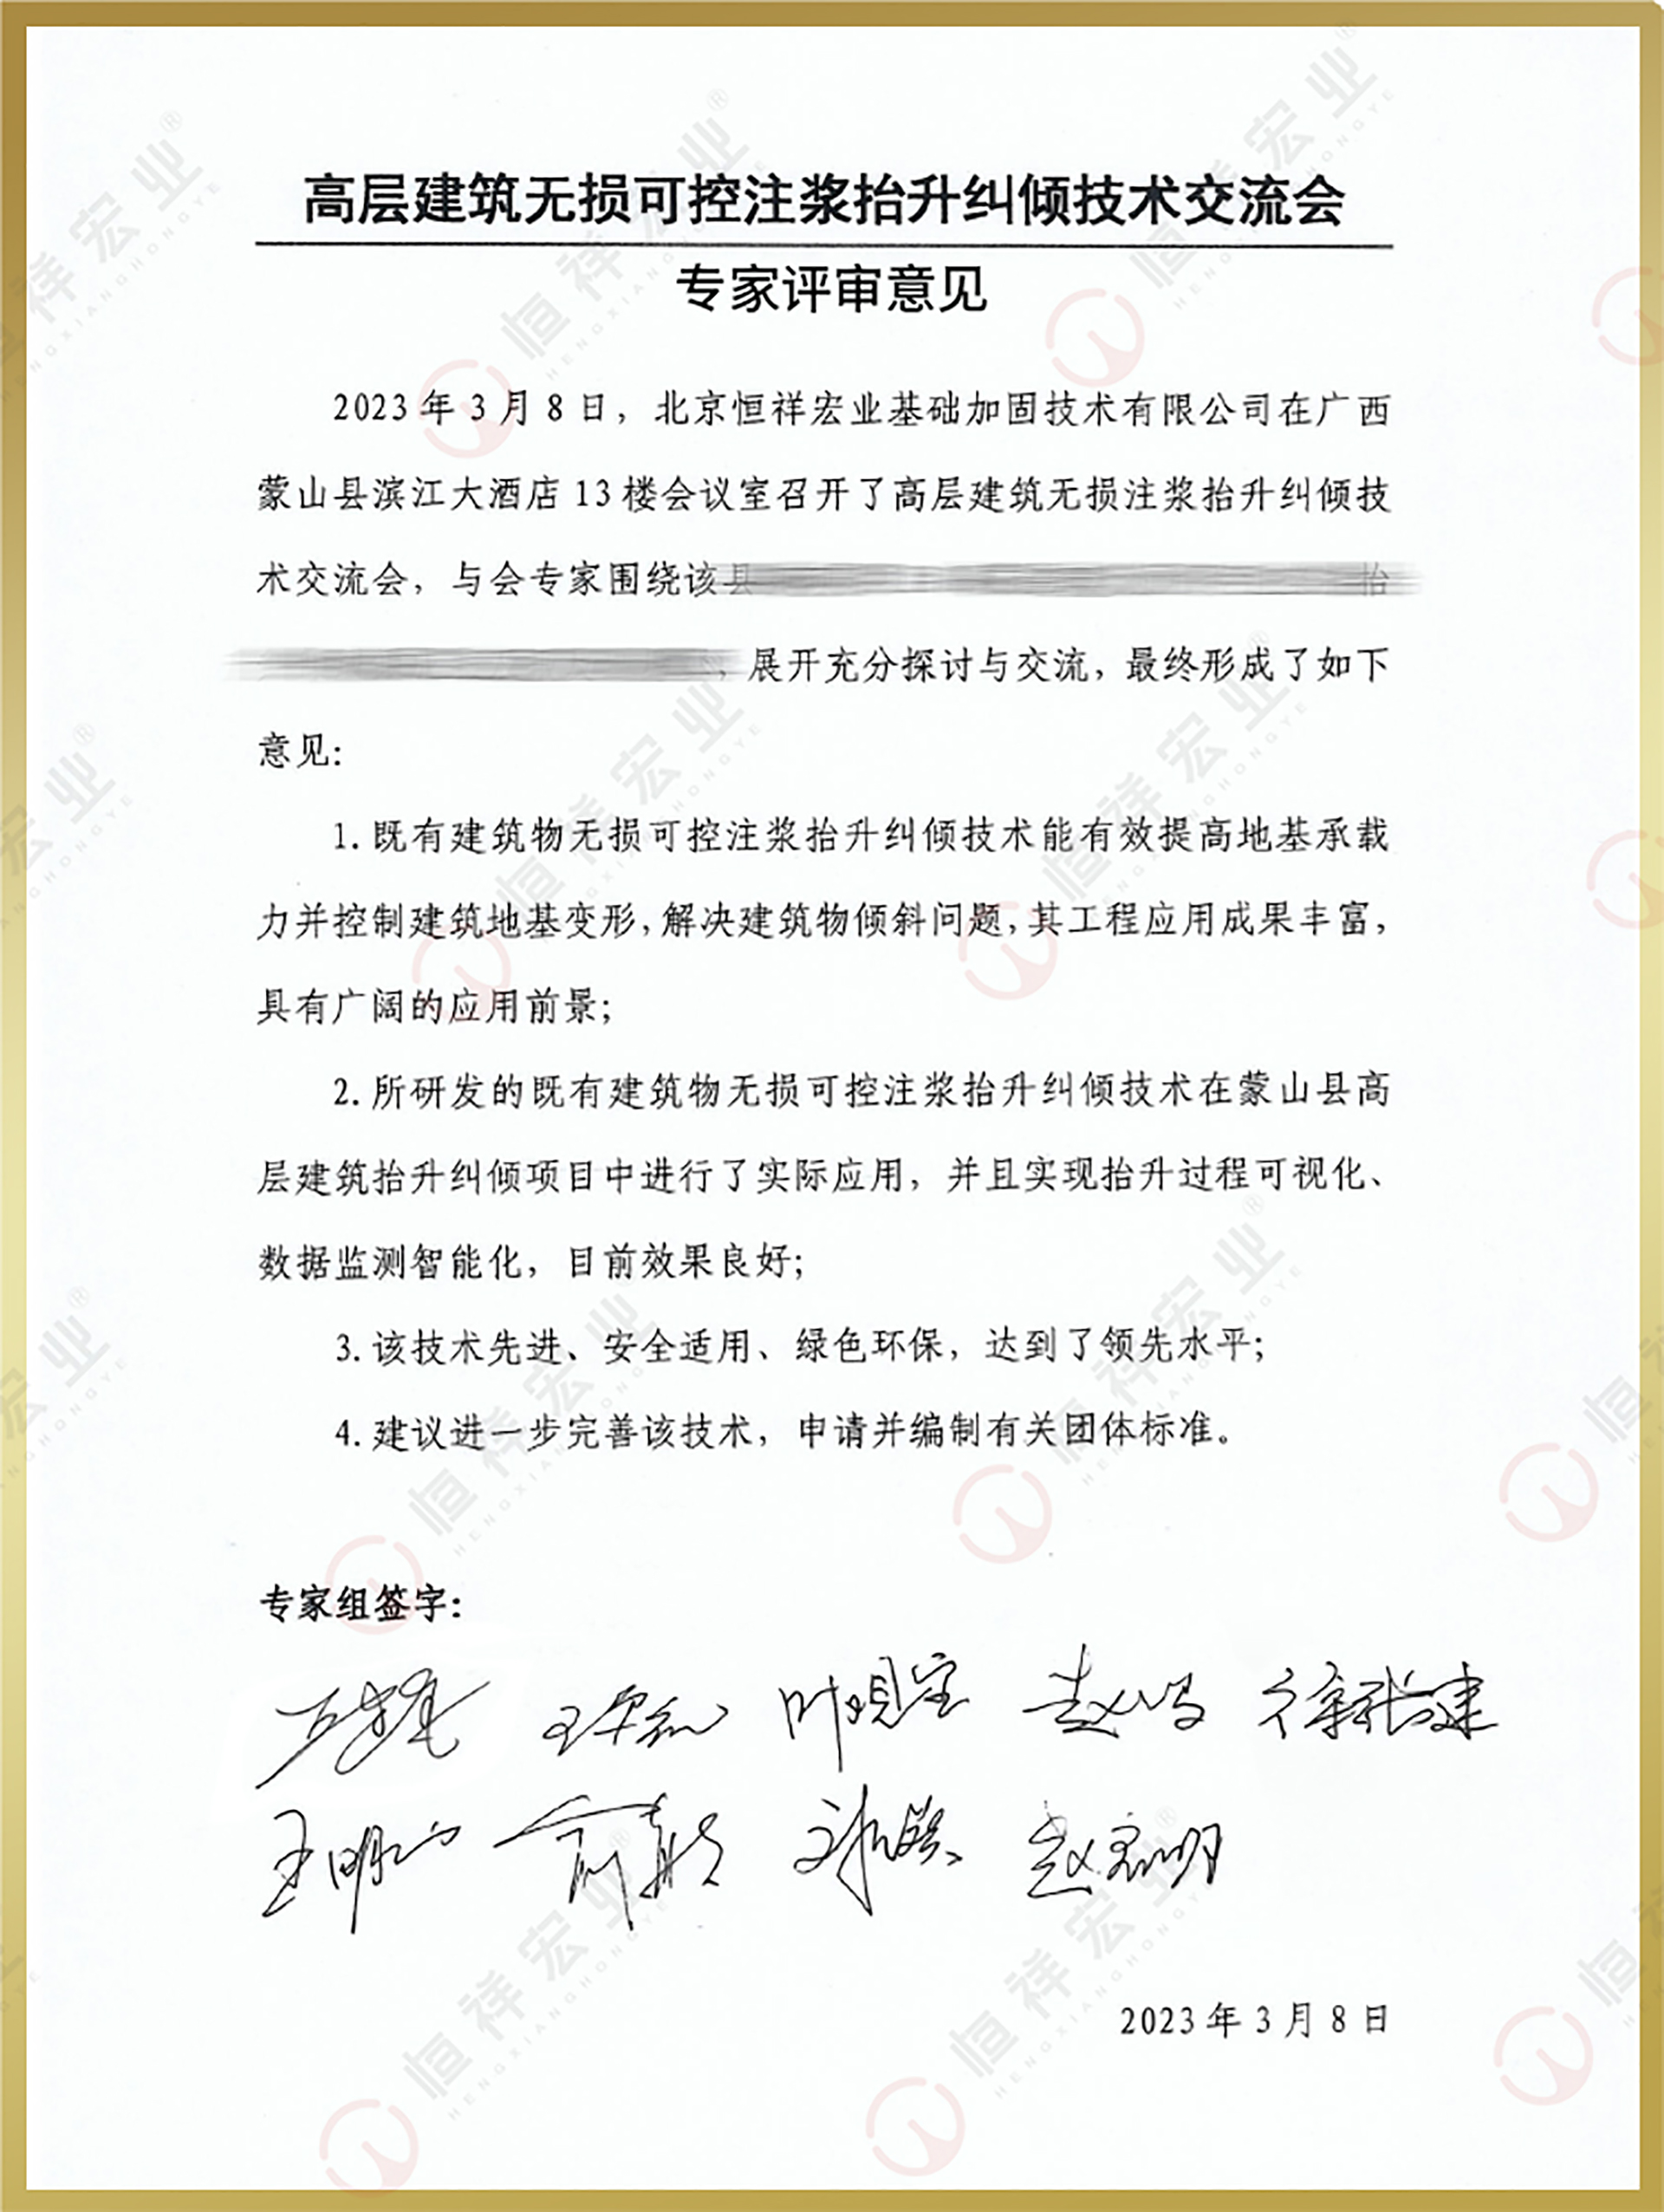 高层建筑无损可控注浆抬升纠倾技术交流会
专家评审意见
2023年3月8日，北京恒祥宏业基础加固技术有限公司在广西
蒙山县滨江大酒店13楼会议室召开了高层建筑无损注浆抬升纠倾技
术交流会，与会专家围绕该县
抬
，展开充分探讨与交流，最终形成了如下
意见：
1.既有建筑物无损可控注浆抬升纠倾技术能有效提高地基承载
力并控制建筑地基变形，解决建筑物倾斜问题，其工程应用成果丰富，
具有广阔的应用前景；
2.所研发的既有建筑物无损可控注浆抬升纠倾技术在蒙山县高
层建筑抬升纠倾项目中进行了实际应用，并且实现抬升过程可视化、
数据监测智能化，目前效果良好；
3.该技术先进、安全适用、绿色环保，达到了领先水平；
4.建议进一步完善该技术，申请并编制有关团体标准。
专家组签字：
叶观宝
2023年3月8日
恒祥宏业®
HENGXIANGHONGYE